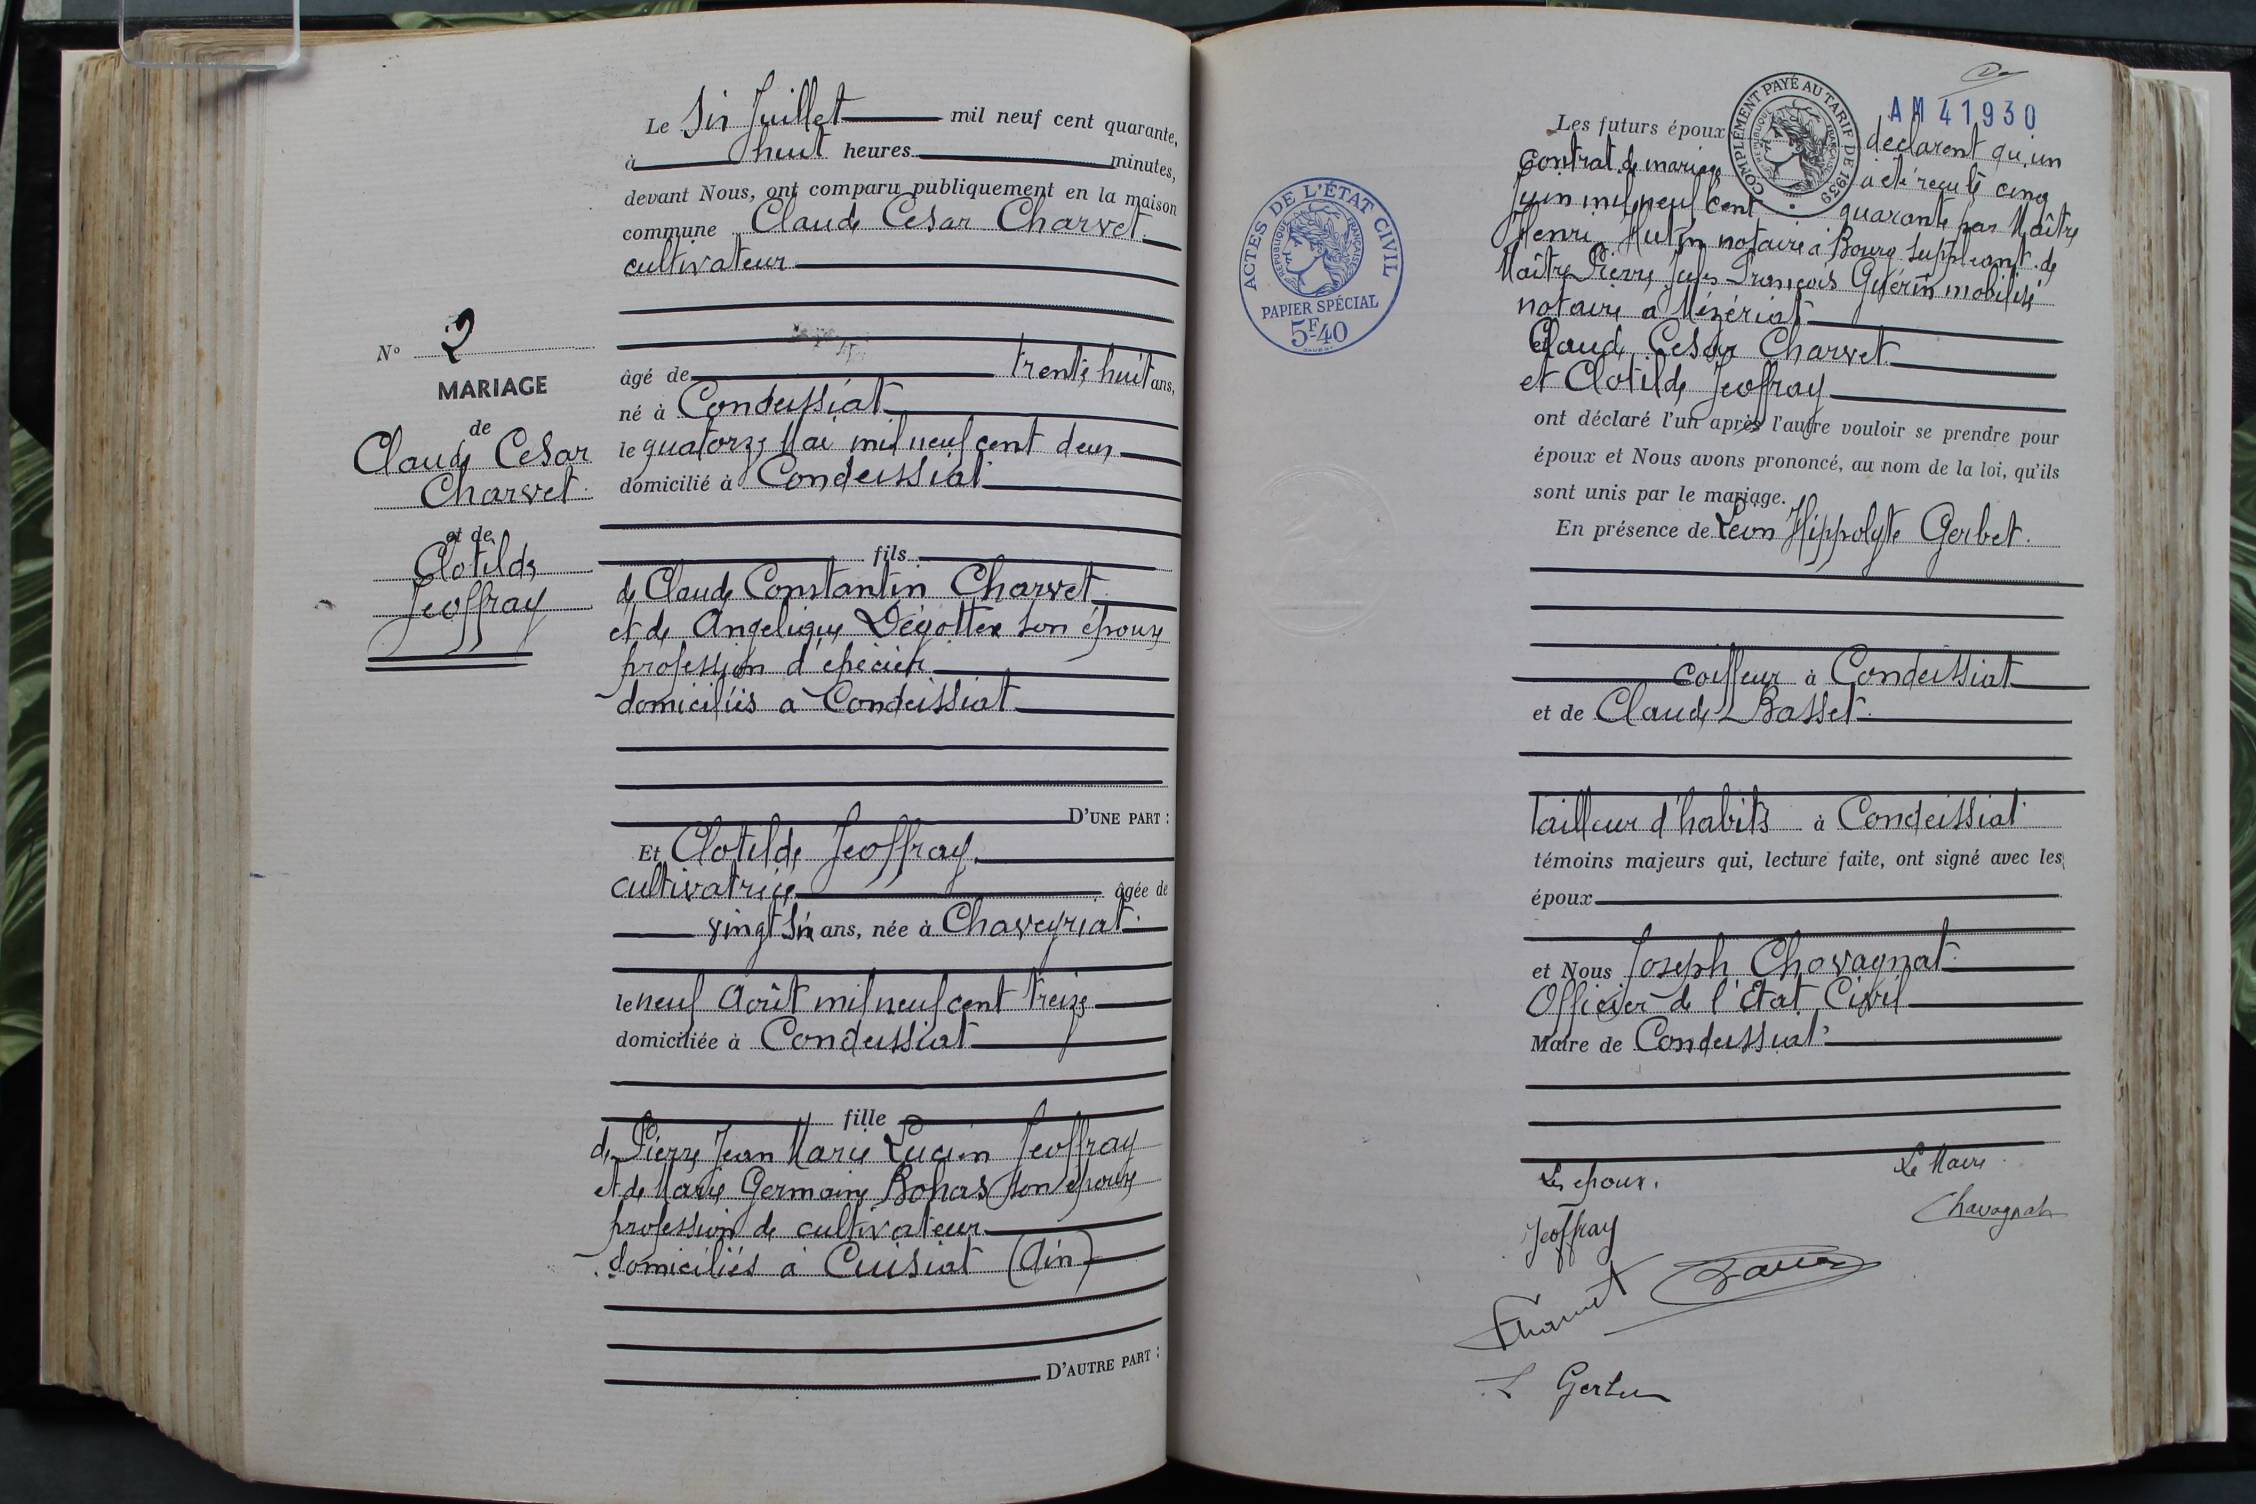 Le Six Juillet mil neuf cent quarante,
à huit heures minutes,
devant Nous, ont comparu publiquement en la maison
commune Claude Cesar Charvet
cultivateur
âgé de trente huit ans,
né à Condeissiat
le quatorze Mai mil neuf cent deux
domicilié à Condeissiat
fils
de Claude Constantin Charvet
et de Angelique Dégottex son épouse
profession d'épicier
domiciliés à Condeissiat
D'UNE PART :
Et Clotilde Jeoffray
cultivatrice âgée de
vingt six ans, née à Chaveyriat
le neuf Août mil neuf cent treize
domiciliée à Condeissiat
fille
de Pierre Jean Marie Lucien Jeoffray
et de Marie Germaine Bohas son épouse
profession de cultivateur
domiciliés à Cuisiat (Ain)
D'AUTRE PART :
N° 2
MARIAGE
de
Claude Cesar
Charvet
et de
Clotilde
Jeoffray
ACTES DE L'ÉTAT CIVIL
RÉPUBLIQUE FRANÇAISE
PAPIER SPÉCIAL
5F40
COMPLÉMENT PAYÉ AU TARIF DE 1939
RÉPUBLIQUE FRANÇAISE
AM 41930
Les futurs époux déclarent qu'un
contrat de mariage a été reçu le cinq
Juin mil neuf cent quarante par Maître
Henri Hutin notaire à Bourg suppléant de
Maître Pierre Jules François Guérin mobilisé
notaire à Mézériat
Claude Cesar Charvet
et Clotilde Jeoffray
ont déclaré l'un après l'autre vouloir se prendre pour
époux et Nous avons prononcé, au nom de la loi, qu'ils
sont unis par le mariage.
En présence de Léon Hippolyte Gerbet
coiffeur à Condeissiat
et de Claude Basset
Tailleur d'habits à Condeissiat
témoins majeurs qui, lecture faite, ont signé avec les
époux
et Nous Joseph Chavagnat
Officier de l'Etat Civil
Maire de Condeissiat
Les époux. Le Maire
Chavagnat
Jeoffray
Charvet
L Gerbet